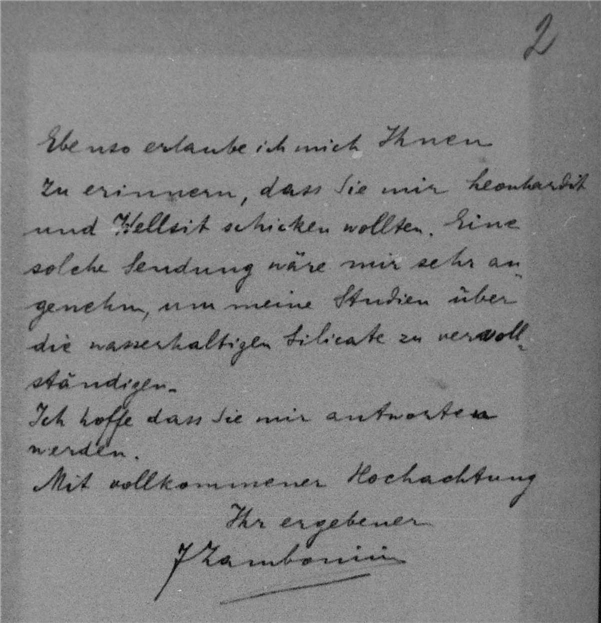 2
Ebenso erlaube ich mich Ihnen
zu erinnern, dass Sie mir Leonhardit
und Wellsit schicken wollten. Eine
solche Sendung wäre mir sehr an-
genehm, um meine Studien über
die wasserhaltigen Silicate zu vervoll-
ständigen.
Ich hoffe dass Sie mir antworten
werden.
Mit vollkommener Hochachtung
Ihr ergebener
F Zambonini